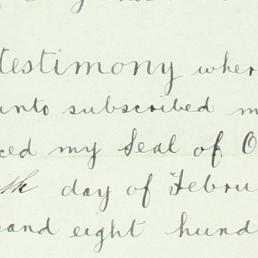 testimony wher
unto subscribed m
ced my Seal of O
th day of Febru
sand eight hund